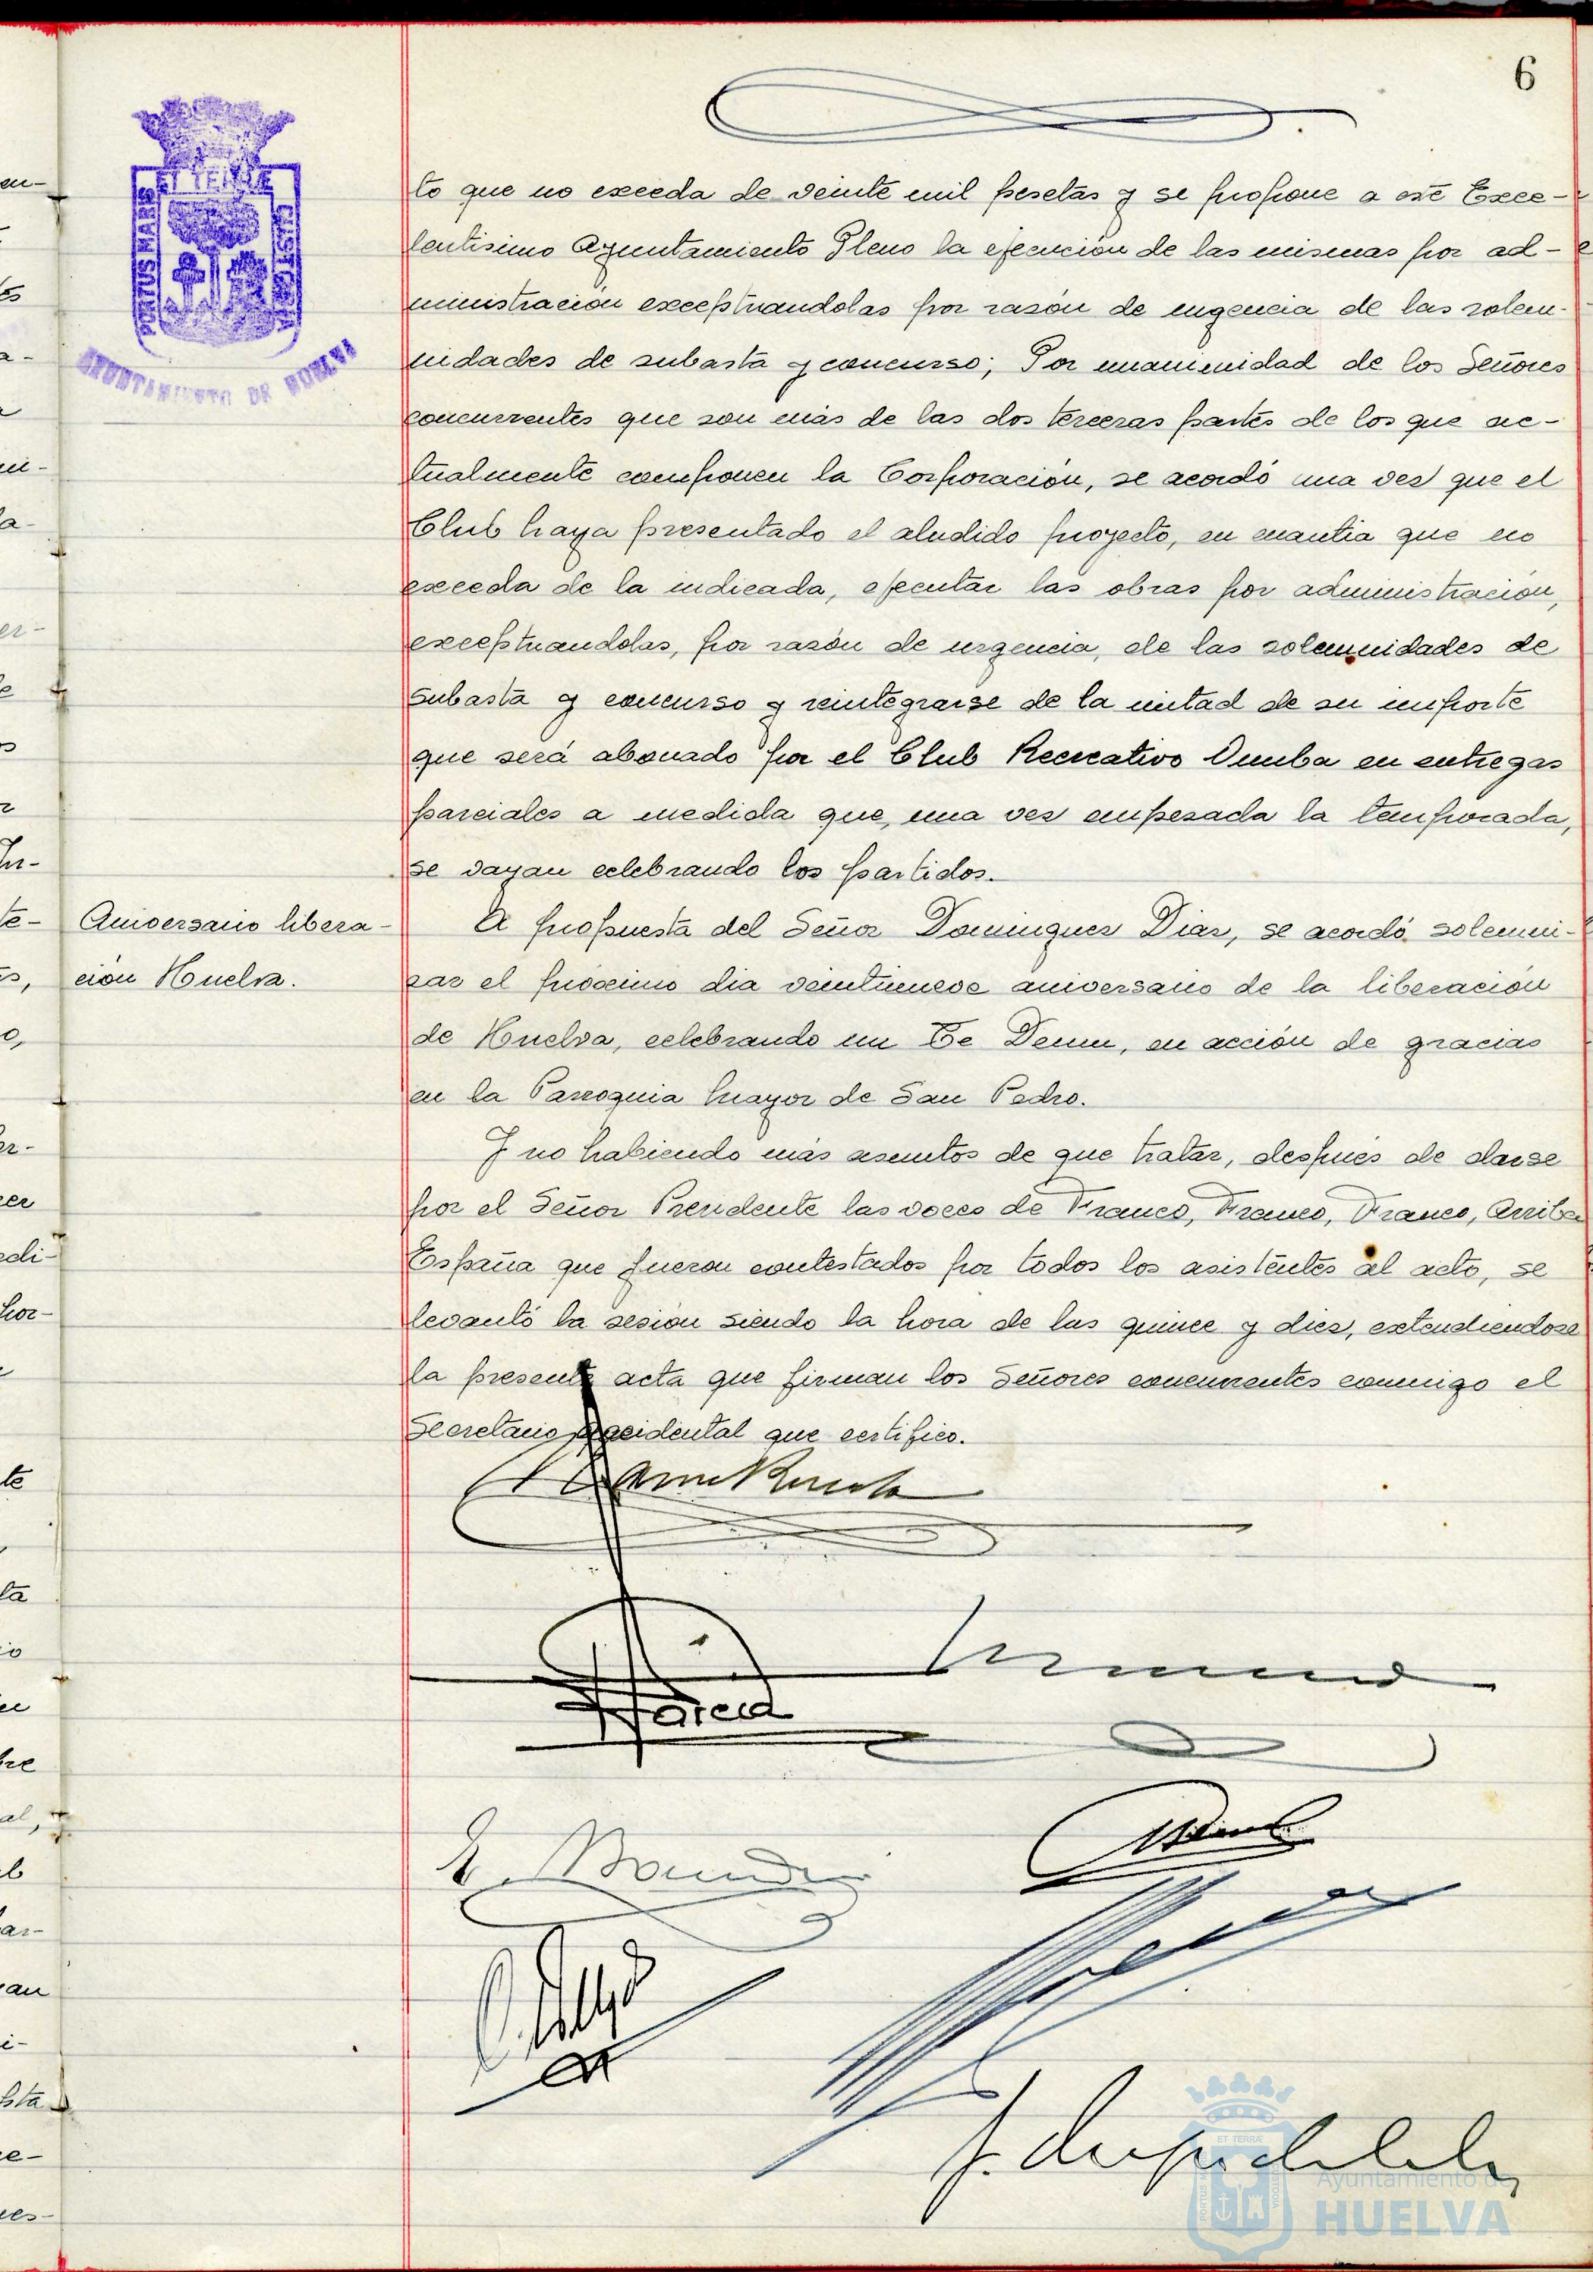 6
ET TERRÆ
PORTUS MARIS
CUSTODIA
AYUNTAMIENTO DE HUELVA
to que no exceda de veinte mil pesetas y se propone a este Exce-
lentisimo Ayuntamiento Pleno la ejecución de las mismas por ad-
ministracion exceptuandolas por razón de urgencia de las solem-
nidades de subasta y concurso; Por unanimidad de los Señores
concurrentes que son más de las dos terceras partes de los que ac-
tualmente componen la Corporación, se acordó una vez que el
Club haya presentado el aludido proyecto, en cuantia que no
exceda de la indicada, ejecutar las obras por administración,
exceptuandolas, por razón de urgencia, de las solemnidades de
subasta y concurso y reintegrarse de la mitad de su importe
que será abonado por el Club Recreativo Onuba en entregas
parciales a medida que, una vez empezada la temporada,
se vayan celebrando los partidos.
Aniversario libera-
ción Huelva.
A propuesta del Señor Dominguez Diaz, se acordó solemni-
zar el próximo dia veintinueve aniversario de la liberación
de Huelva, celebrando un Te Deum, en acción de gracias
en la Parroquia Mayor de San Pedro.
Y no habiendo más asuntos de que tratar, después de darse
por el Señor Presidente las voces de Franco, Franco, Franco, Arriba
España que fueron contestados por todos los asistentes al acto, se
levantó la sesión siendo la hora de las quince y diez, extendiendose
la presente acta que firman los Señores concurrentes conmigo el
Secretario accidental que certifico.
Garcia
Ayuntamiento de
HUELVA